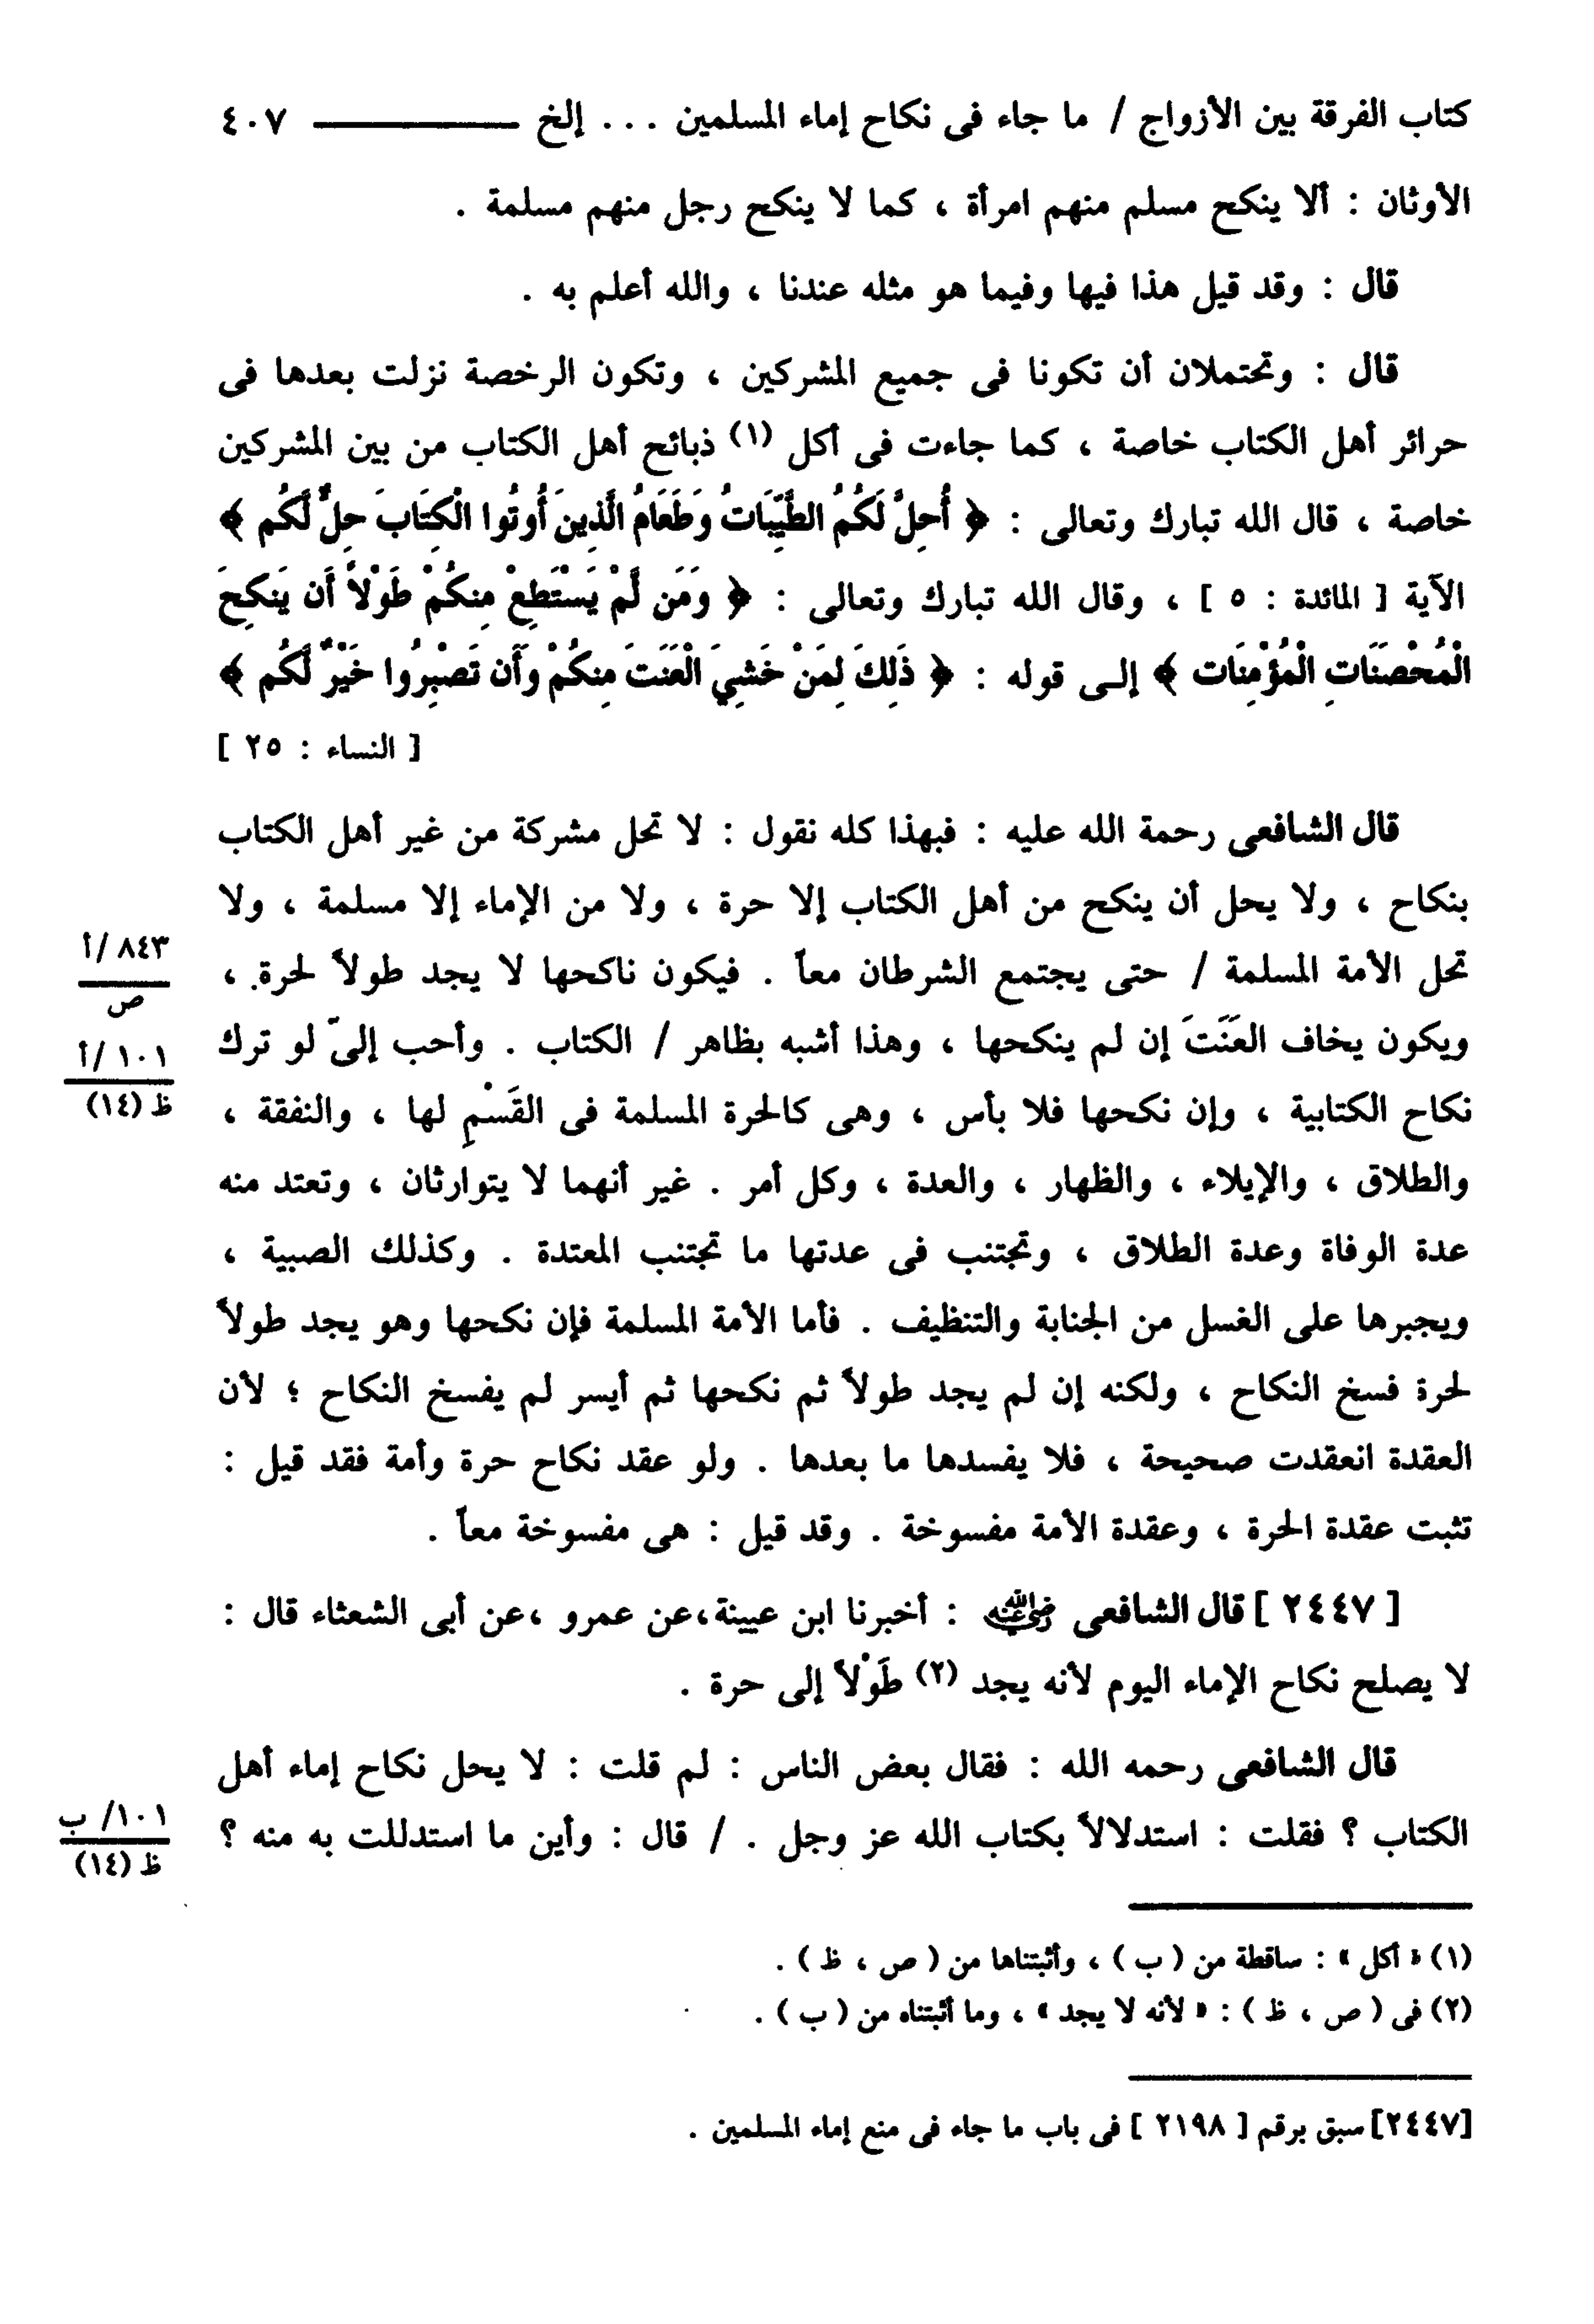 كتاب الفرقة بين الأزواج / ما جاء فى نكاح إماء المسلمين ... إلخ ــــــــــــ ٤٠٧
الأوثان : ألا ينكح مسلم منهم امرأة ، كما لا ينكح رجل منهم مسلمة .
قال : وقد قيل هذا فيها وفيما هو مثله عندنا ، والله أعلم به .
قال : وتحتملان أن تكونا فى جميع المشركين ، وتكون الرخصة نزلت بعدها فى
حرائر أهل الكتاب خاصة ، كما جاءت فى أكل (١) ذبائح أهل الكتاب من بين المشركين
خاصة ، قال الله تبارك وتعالى : ﴿ أُحِلَّ لَكُمُ الطَّيِّبَاتُ وَطَعَامُ الَّذِينَ أُوتُوا الْكِتَابَ حِلٌّ لَّكُم ﴾
الآية [ المائدة : ٥ ] ، وقال الله تبارك وتعالى : ﴿ وَمَن لَّمْ يَسْتَطِعْ مِنكُمْ طَوْلاً أَن يَنكِحَ
الْمُحْصَنَاتِ الْمُؤْمِنَات ﴾ إلـى قوله : ﴿ ذَلِكَ لِمَنْ خَشِيَ الْعَنَتَ مِنكُمْ وَأَن تَصْبِرُوا خَيْرٌ لَّكُم ﴾
[ النساء : ٢٥ ]
قال الشافعى رحمة الله عليه : فبهذا كله نقول : لا تحل مشركة من غير أهل الكتاب
بنكاح ، ولا يحل أن ينكح من أهل الكتاب إلا حرة ، ولا من الإماء إلا مسلمة ، ولا
تحل الأمة المسلمة / حتى يجتمع الشرطان معاً . فيكون ناكحها لا يجد طولاً لحرة ،
٨٤٣ /أ
ص
ويكون يخاف العَنَتَ إن لم ينكحها ، وهذا أشبه بظاهر / الكتاب . وأحب إلىّ لو ترك
١٠١ /أ
ظ (١٤)
نكاح الكتابية ، وإن نكحها فلا بأس ، وهى كالحرة المسلمة فى القَسْمِ لها ، والنفقة ،
والطلاق ، والإيلاء ، والظهار ، والعدة ، وكل أمر . غير أنهما لا يتوارثان ، وتعتد منه
عدة الوفاة وعدة الطلاق ، وتجتنب فى عدتها ما تجتنب المعتدة . وكذلك الصبية ،
ويجبرها على الغسل من الجنابة والتنظيف . فأما الأمة المسلمة فإن نكحها وهو يجد طولاً
لحرة فسخ النكاح ، ولكنه إن لم يجد طولاً ثم نكحها ثم أيسر لم يفسخ النكاح ؛ لأن
العقدة انعقدت صحيحة ، فلا يفسدها ما بعدها . ولو عقد نكاح حرة وأمة فقد قيل :
تثبت عقدة الحرة ، وعقدة الأمة مفسوخة . وقد قيل : هى مفسوخة معاً .
[ ٢٤٤٧ ] قال الشافعى رضي الله عنه : أخبرنا ابن عيينة ،عن عمرو ،عن أبى الشعثاء قال :
لا يصلح نكاح الإماء اليوم لأنه يجد (٢) طَوْلاً إلى حرة .
قال الشافعى رحمه الله : فقال بعض الناس : لم قلت : لا يحل نكاح إماء أهل
الكتاب ؟ فقلت : استدلالاً بكتاب الله عز وجل . / قال : وأين ما استدللت به منه ؟
١٠١/ ب
ظ (١٤)
(١) « أكل » : ساقطة من ( ب ) ، وأثبتناها من ( ص ، ظ ) .
(٢) فى ( ص ، ظ ) : « لأنه لا يجد » ، وما أثبتناه من ( ب ) .
[٢٤٤٧] سبق برقم [ ٢١٩٨ ] فى باب ما جاء فى منع إماء المسلمين .